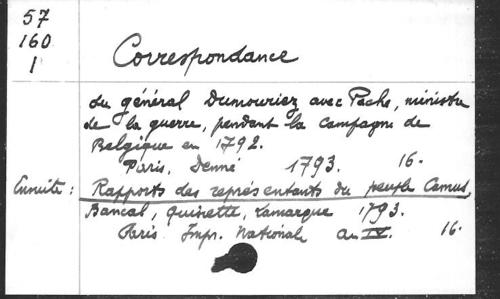 57
160
1
Correspondance
du général Dumouriez avec Pache, ministre
de la guerre, pendant la campagne de
Belgique en 1792.
Paris, Denné 1793. 16.
Ensuite: Rapports des représentants du peuple Camus,
Bancal, Quinette, Lamarque 1793.
Paris Impr. Nationale an IV. 16.